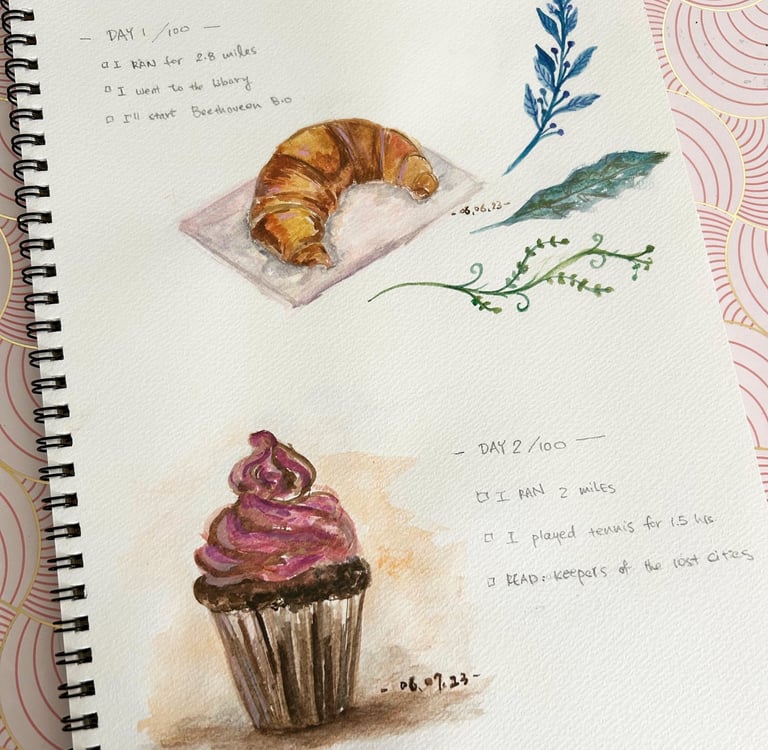 - DAY 1 /100 -
□ I RAN for 2.8 miles
□ I went to the libary
□ I'll start Beethoveen Bio
- 06.06.23 -
- DAY 2 /100 -
□ I RAN 2 miles
□ I played tennis for 1.5 hrs.
□ READ: keepers of the lost cities
- 06.07.23 -